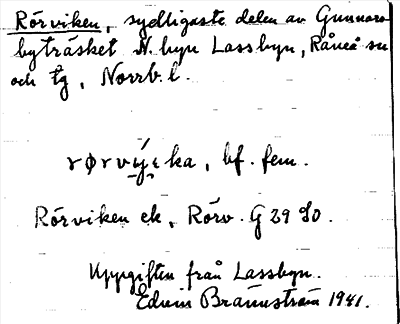 Rörviken, sydligaste delen av Gunnars-
byträsket N. byn Lassbyn, Råneå sn
och tg, Norrb. l.
rørvýika, bf. fem.
Rörviken ek, Rörv. G 29 SO.
Uppgiften från Lassbyn.
Edvin Brännström 1941.